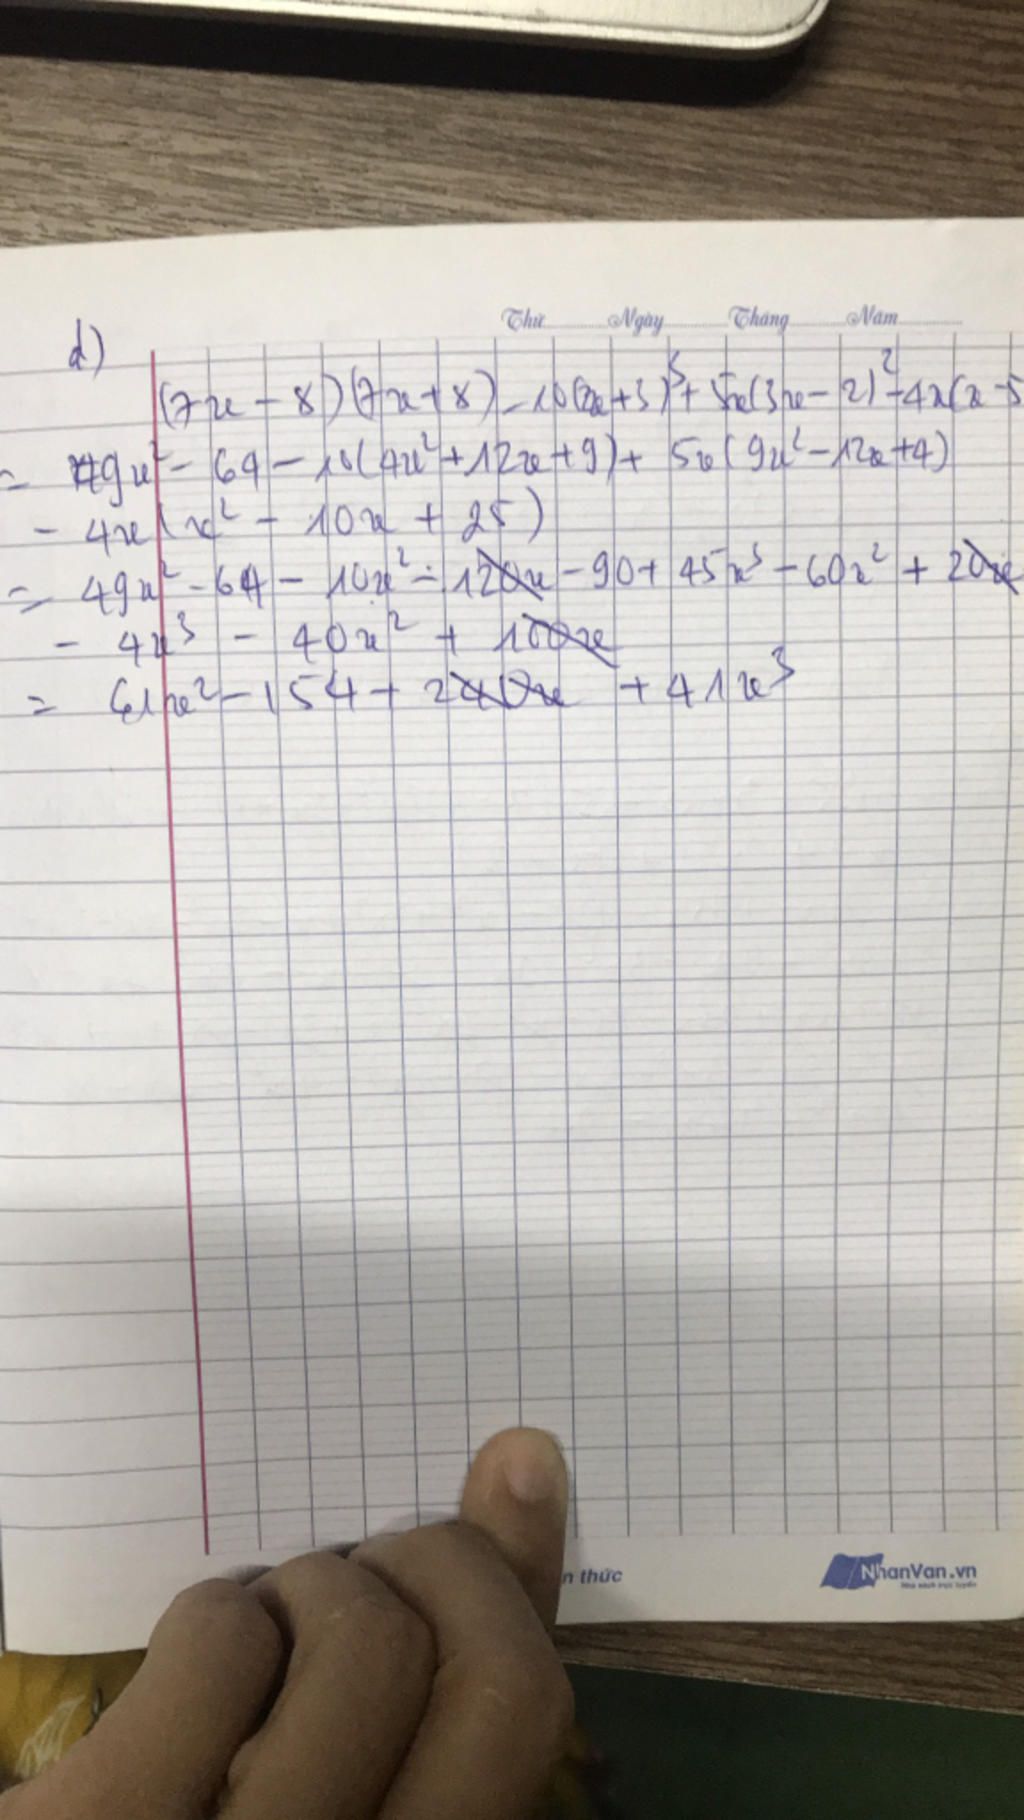 Thứ Ngày Tháng Năm
d)
(7x - 8)(7x + 8) - 10(2x + 3)³ + 5x(3x - 2)² - 4x(x - 5
= 49x² - 64 - 10(4x² + 12x + 9) + 5x(9x² - 12x + 4)
- 4x(x² - 10x + 25)
= 49x² - 64 - 10x² - 120x - 90 + 45x³ - 60x² + 20x
- 4x³ - 40x² + 100x
= 61x² - 154 + 240x + 41x³
n thức
NhanVan.vn